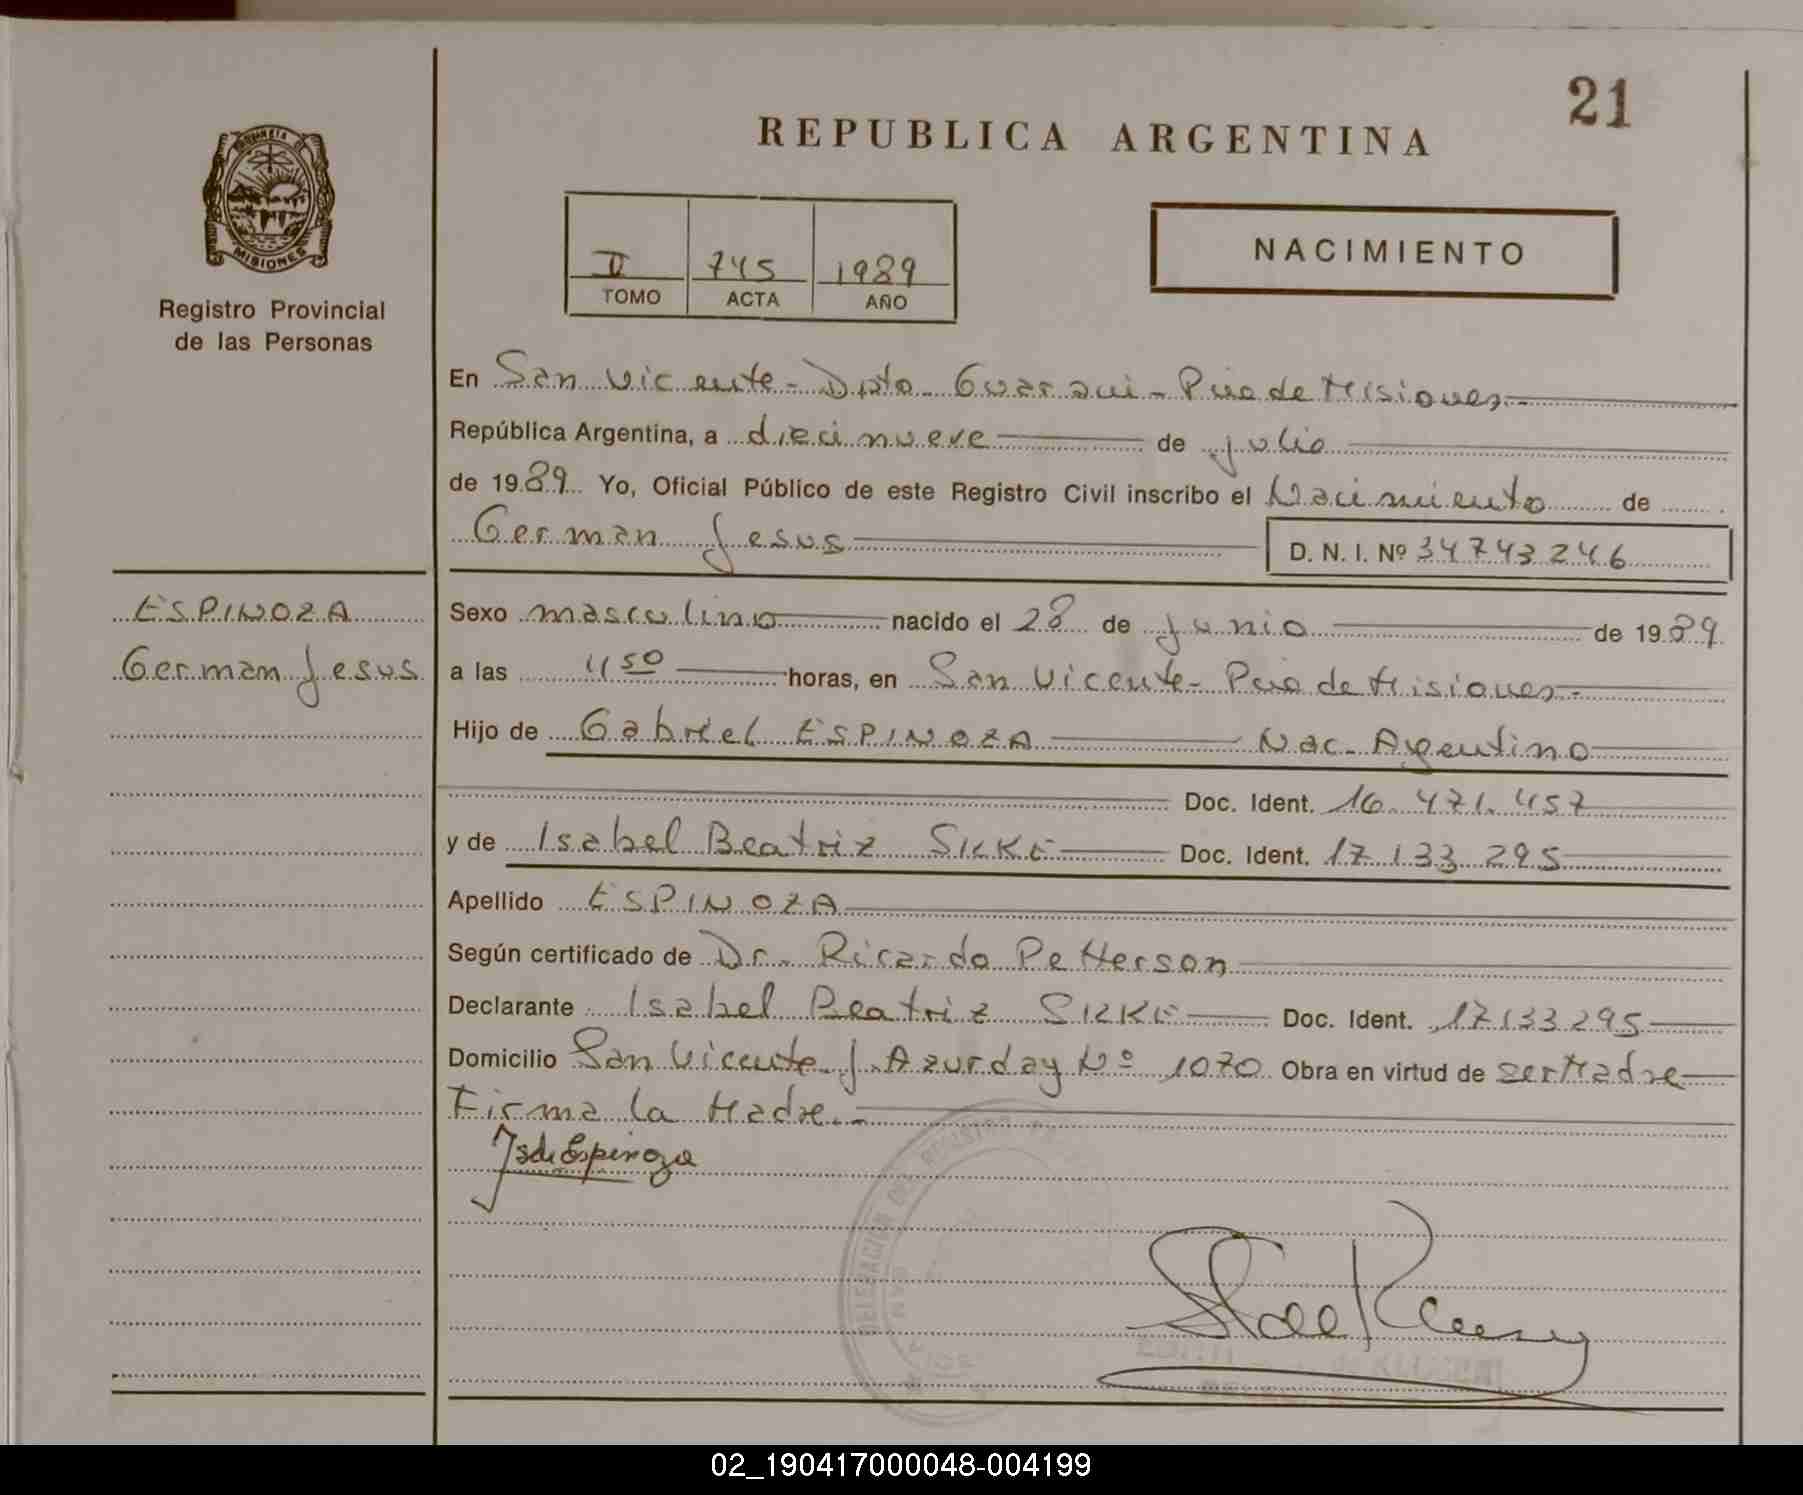 21
REPUBLICA ARGENTINA
PROVINCIA D
MISIONES
Registro Provincial
de las Personas
II 745 1989
TOMO ACTA AÑO
NACIMIENTO
En San Vicente - Dpto. Guaraní - Pcia de Misiones.-
República Argentina, a diecinueve de julio
de 1989 Yo, Oficial Público de este Registro Civil inscribo el Nacimiento de
German Jesus D. N. I. Nº 34743246
ESPINOZA
German Jesus
Sexo masculino nacido el 28 de junio de 1989
a las horas, en San Vicente - Pcia de Misiones.-
Hijo de Gabriel ESPINOZA Nac. Argentino
Doc. Ident. 16.471.457
y de Isabel Beatriz Doc. Ident. 17.133.295
Apellido ESPINOZA
Según certificado de Dr. Ricardo Petterson
Declarante Isabel Beatriz Doc. Ident. 17133295
Domicilio San Vicente J. Azurday Nº 1070 Obra en virtud de ser Madre
Firma la Madre.-
Espinoza
DELEGACION DEL REGISTRO
SAN
02_190417000048-004199